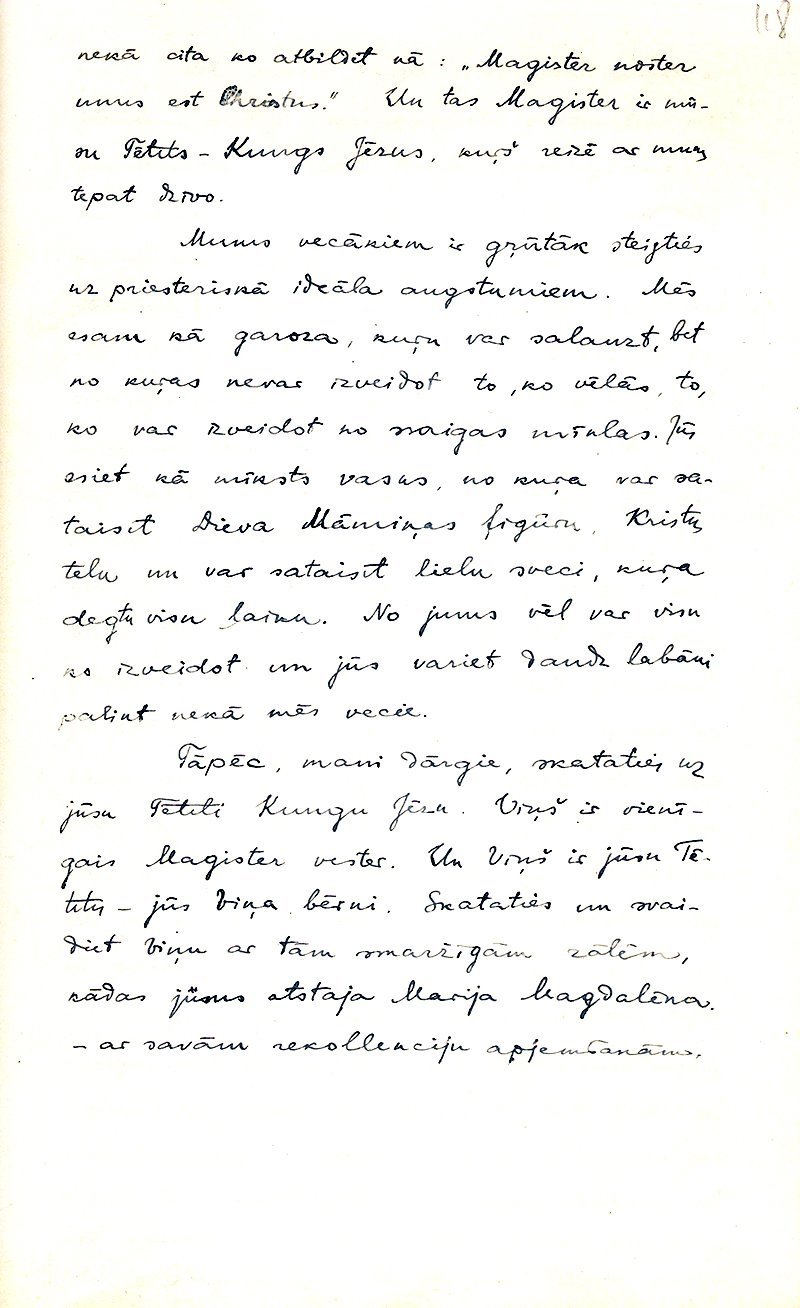 118
nekā cita ko atbildēt kā : „Magister noster
unus est Christus." Un tas Magister ir mū-
su Tētīts – Kungs Jēzus, kuŗš reizē ar mums
tepat dzīvo.
Mums vecākiem ir gŗūtāk steigties
uz priesteriskā ideāla augstumiem. Mēs
esam kā garoza, kuŗu var salauzt, bet
no kuŗas nevar izveidot to, ko vēlās, to,
ko var izveidot no maigas mīklas. Jūs
esiet kā mīksts vasks, no kuŗa var sa-
taisīt Dieva Māmiņas figūru, Kristus
telu un var sataisīt lielu sveci, kuŗa
degtu visu laiku. No jums vēl var visu
ko izveidot un jūs variet daudz labāki
palikt nekā mēs vecie.
Tāpēc, mani dārgie, skataties uz
jūsu Tētīti Kungu Jēzu. Viņš ir vienī-
gais Magister vester. Un Viņš ir jūsu Tē-
tīts – jūs Viņa bērni. Skataties un svai-
diet Viņu ar tām smaržīgām zālēm,
kādas jūms atstāja Marija Magdalēna.
– ar savām rekollekciju apjemšanām.